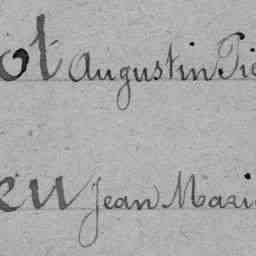 ot Augustin Pie
eu Jean Marie